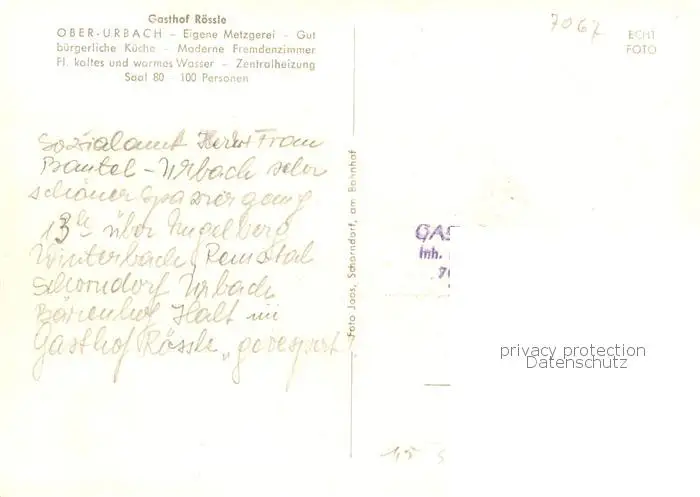 Gasthof Rössle
OBER-URBACH – Eigene Metzgerei - Gut
bürgerliche Küche - Moderne Fremdenzimmer
Fl. kaltes und warmes Wasser – Zentralheizung
Saal 80 - 100 Personen
7067
ECHT
FOTO
Sozialamt Herr Fram
Bantel - Urbach sehr
schöner Spaziergang
13 über Engelberg
Winterbach, Remstal
Schorndorf Urbach
Bärenhof Halt im
Gasthof Rössle „
Foto Joos, Schorndorf, am Bahnhof
GAS
Inh.
privacy protection
Datenschutz
15